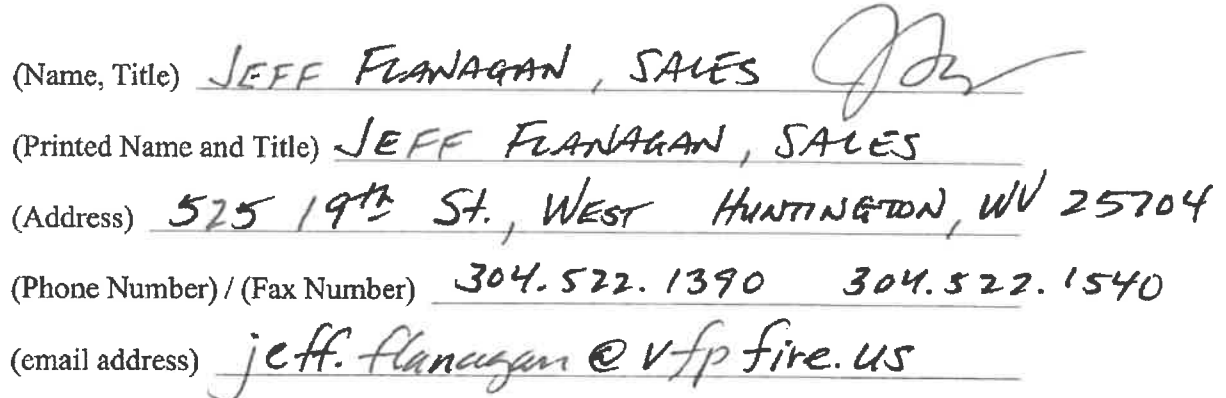 (Name, Title) JEFF FLANAGAN, SALES
(Printed Name and Title) JEFF FLANAGAN, SALES
(Address) 525 19th St., WEST HUNTINGTON, WV 25704
(Phone Number) / (Fax Number) 304.522.1390 304.522.1540
(email address) jeff.flanagan@vfpfire.us